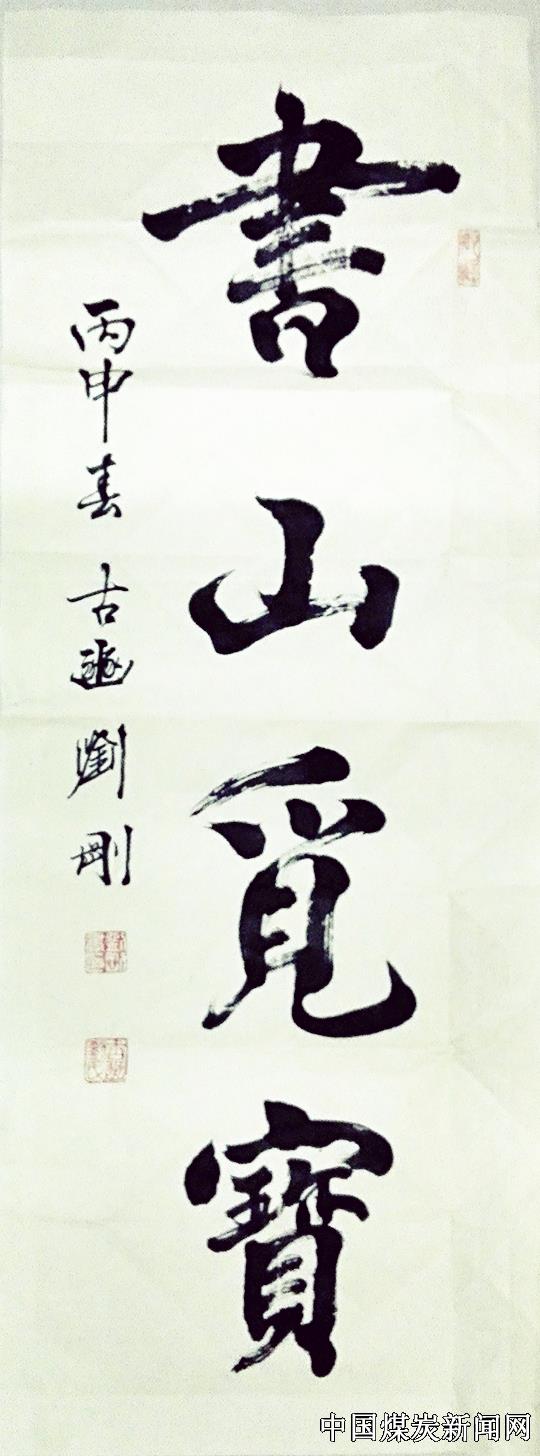 書山覓寶
丙申春 古豳 劉剛
中国煤炭新闻网